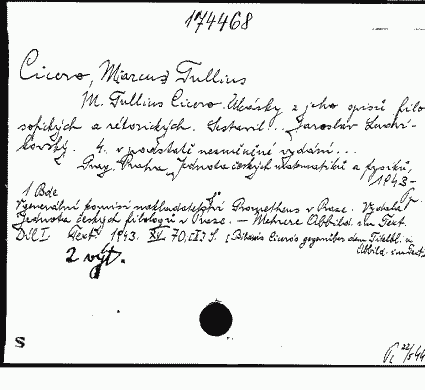 174468
Cicero, Marcus Tullius
M. Tullius Cicero. Ukázky z jeho spisů filo-
sofických a rétorických. Sestavil... Jaroslav Ludvi-
kovský. 4. v podstatě nezměněné vydání...
Prag, Praha, Jednota českých matematiků a fysiků,
1943-
1 Bde
V generální komisi nakladatelství Prometheus v Praze. Vydala
Jednota českých filologů v Praze. - Mehrere Abbild. im Text.
Díl I. Text. 1943. XV, 70, [I] S. [Bildnis Ciceros gegenüber dem Titelbl. u.
Abbild. im Text.]
2 výt.
S